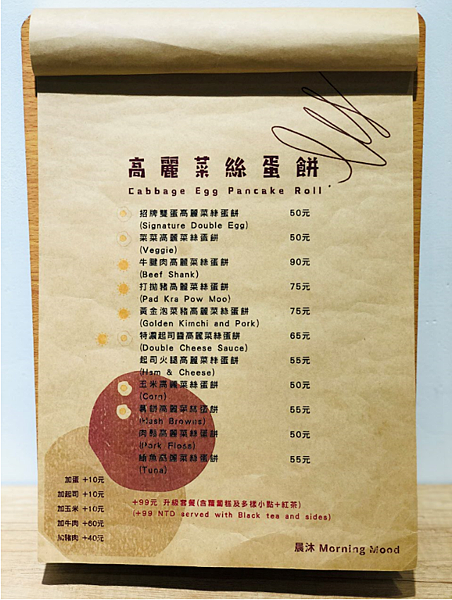 高麗菜絲蛋餅
Cabbage Egg Pancake Roll
招牌雙蛋高麗菜絲蛋餅 50元
(Signature Double Egg)
菜菜高麗菜絲蛋餅 50元
(Veggie)
牛腱肉高麗菜絲蛋餅 90元
(Beef Shank)
打拋豬高麗菜絲蛋餅 75元
(Pad Kra Pow Moo)
黃金泡菜豬高麗菜絲蛋餅 75元
(Golden Kimchi and Pork)
特濃起司醬高麗菜絲蛋餅 65元
(Double Cheese Sauce)
起司火腿高麗菜絲蛋餅 55元
(Ham & Cheese)
玉米高麗菜絲蛋餅 50元
(Corn)
薯餅高麗菜絲蛋餅 55元
(Hash Browns)
肉鬆高麗菜絲蛋餅 50元
(Pork Floss)
鮪魚高麗菜絲蛋餅 55元
(Tuna)
加蛋 +10元
加起司 +10元
加玉米 +10元
加牛肉 +60元
加豬肉 +40元
+99元 升級套餐(含蘿蔔糕及多樣小點+紅茶)
(+99 NTD served with Black tea and sides)
晨沐 Morning Mood